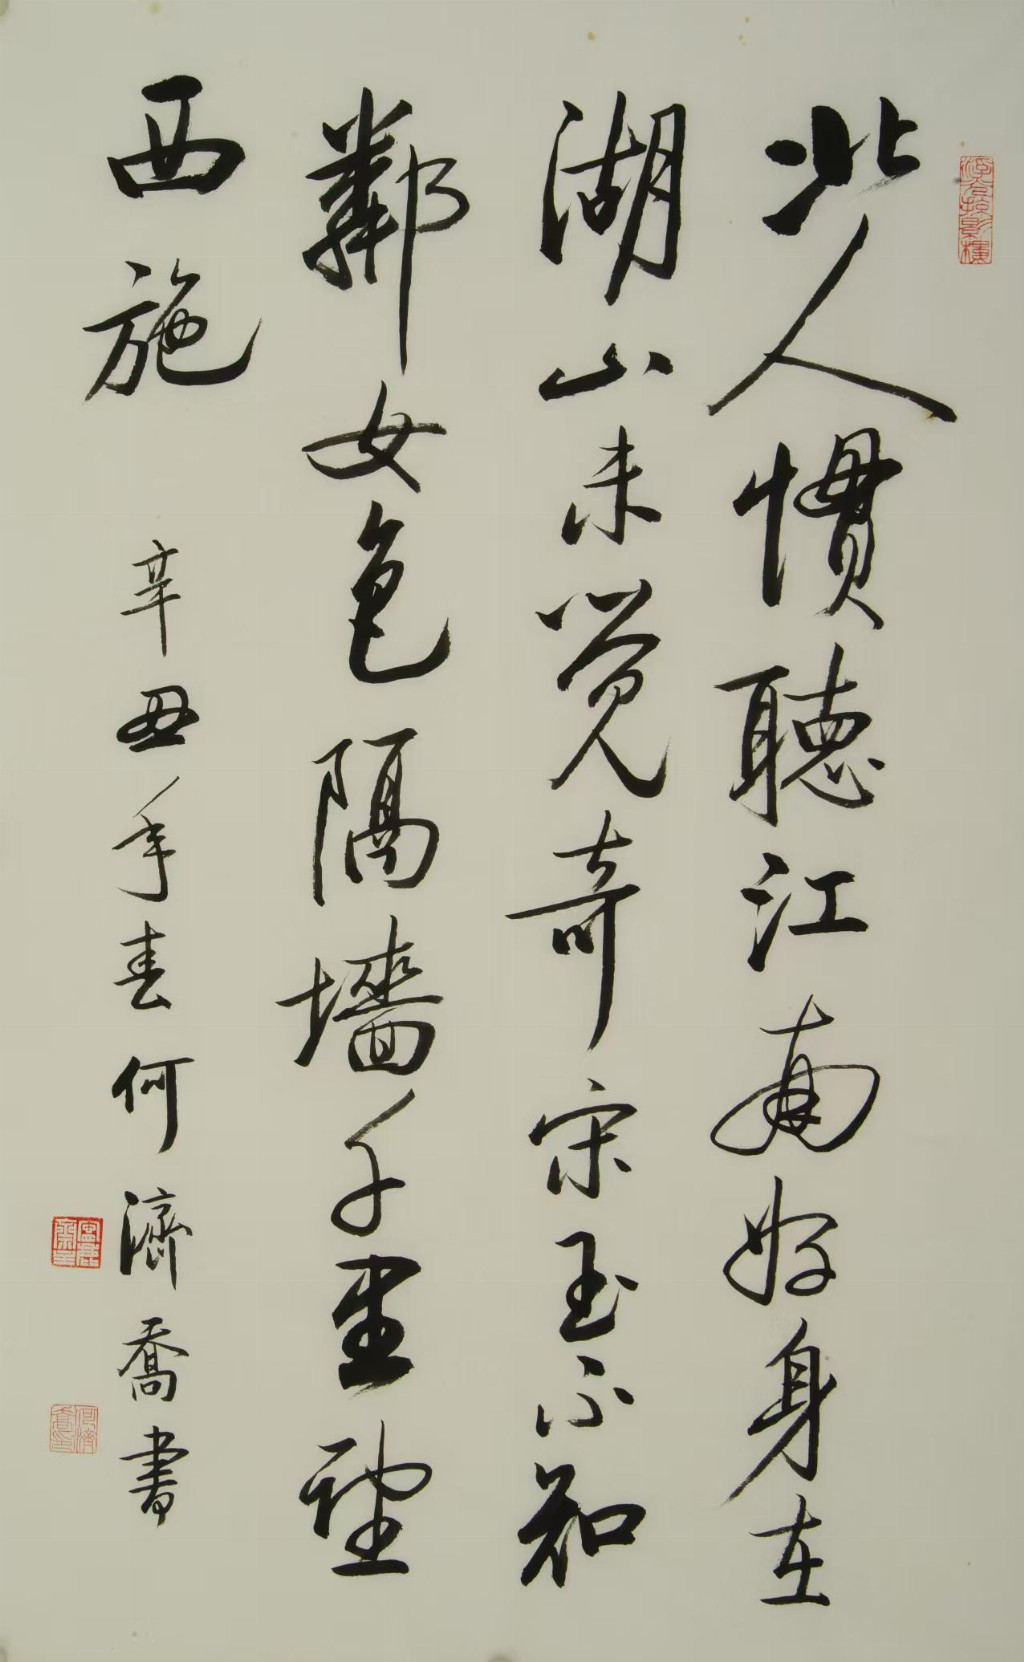 北人惯聽江南好身在
湖山未覺奇宋玉不知
鄰女色隔墻千里望
西施
辛丑年春何濟喬書